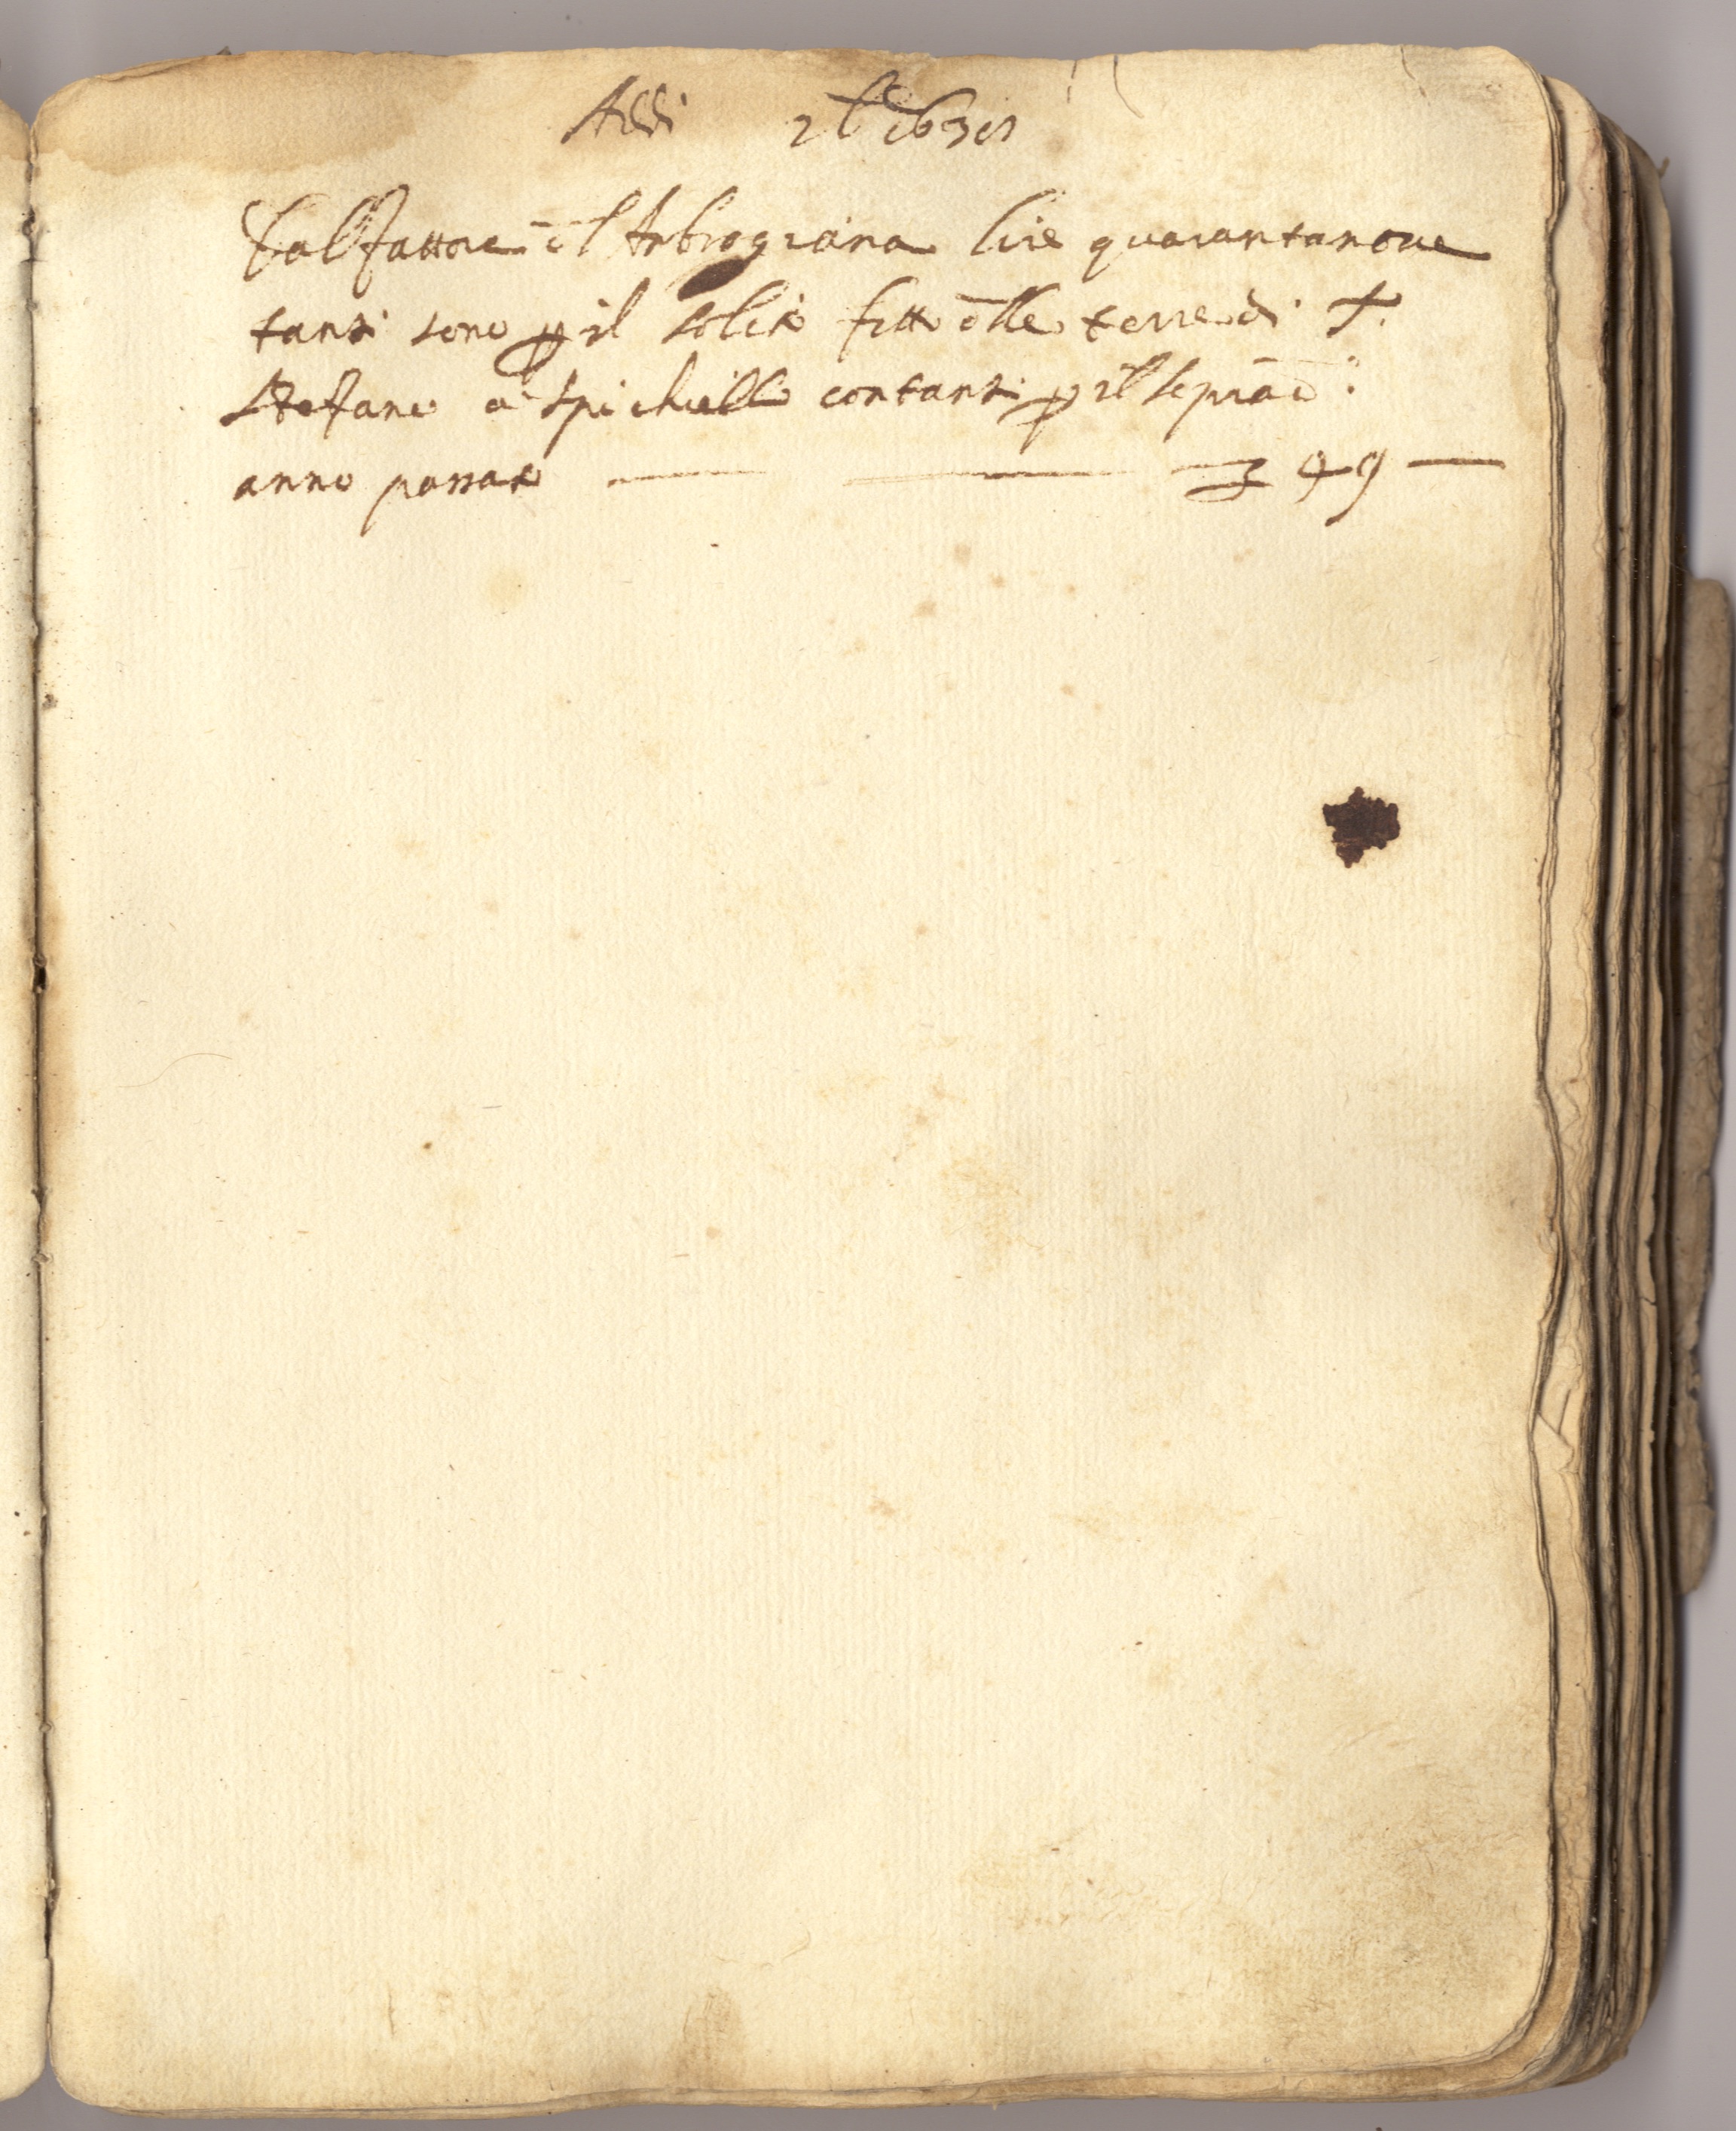 Addi
Dal fattore d̄l Anbrogiana lire quarantanoue
tanti sono p il solito fitto d̄lle terre di S.
Stefano a Spichiello contanti p il sopra d̄:
anno passato — — — 49 —